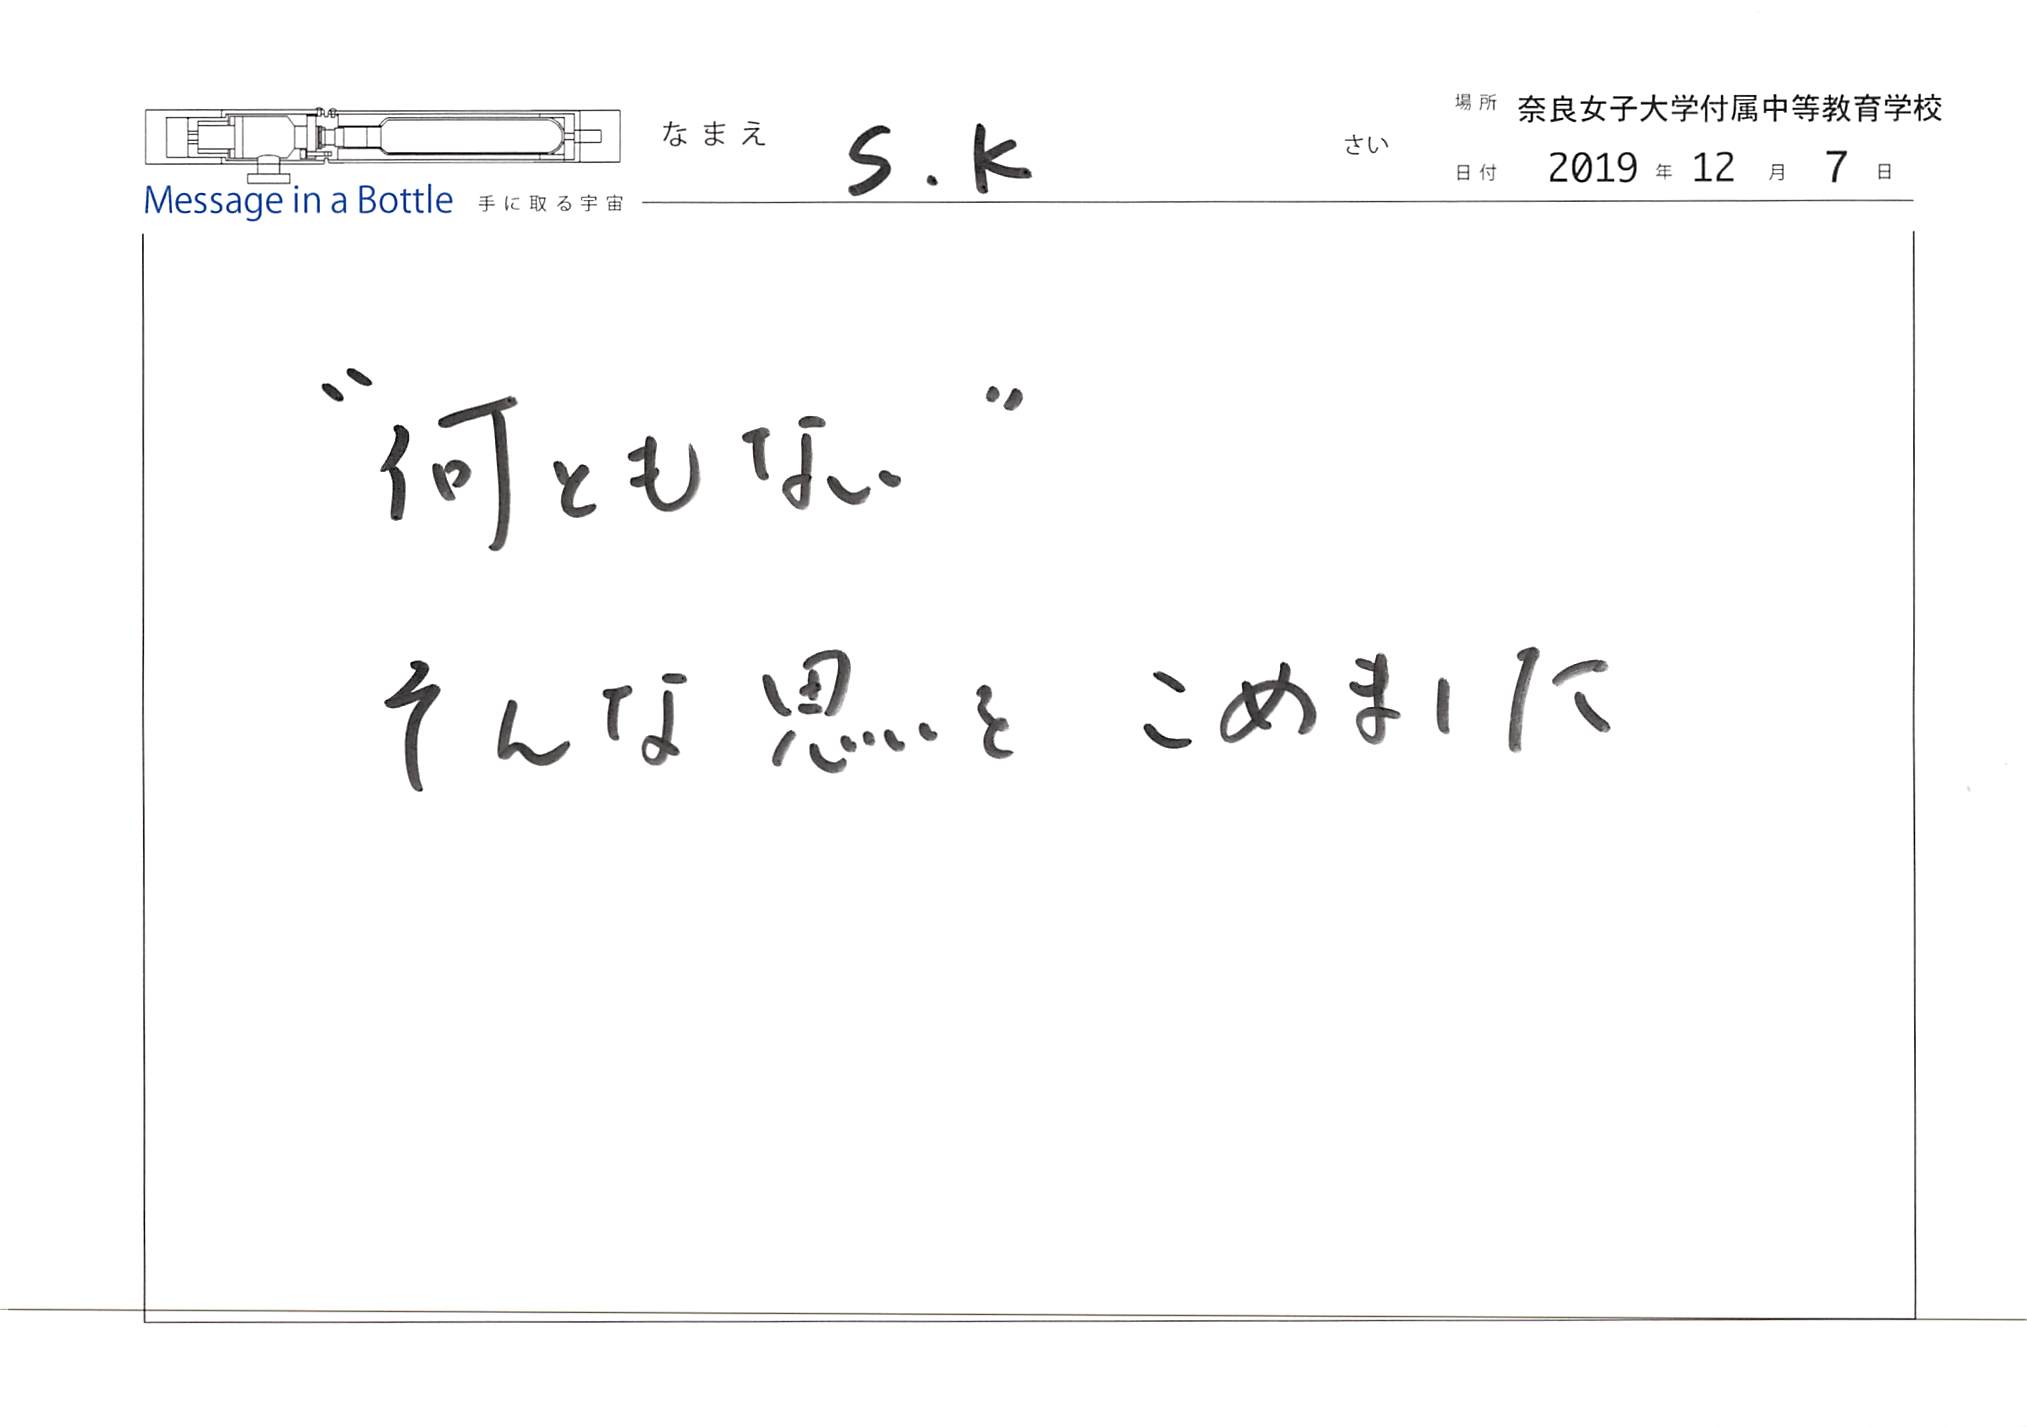 なまえ S.K
さい
場所 奈良女子大学付属中等教育学校
日付 2019 年 12 月 7 日
Message in a Bottle 手に取る宇宙
"何ともない"
そんな思いを こめました